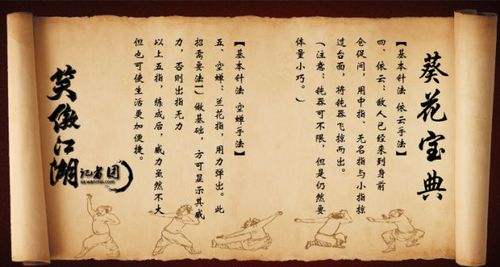 葵花宝典
【基本针法 依云手法】
四、依云：敌人已经来到身前
仓促间，用中指、无名指与小指掠
过台面，将钝器飞掠而出。
（注意：钝器可不限，但是仍然要
体量小巧。）
【基本针法 空蝉手法】
五、空蝉：兰花指，用力弹出。此
招需要法】做基础，方可显示其威
力，否则出指无力
以上五指，练成后，威力虽然不大
但也可使生活更加便捷。
笑傲江湖
记者团